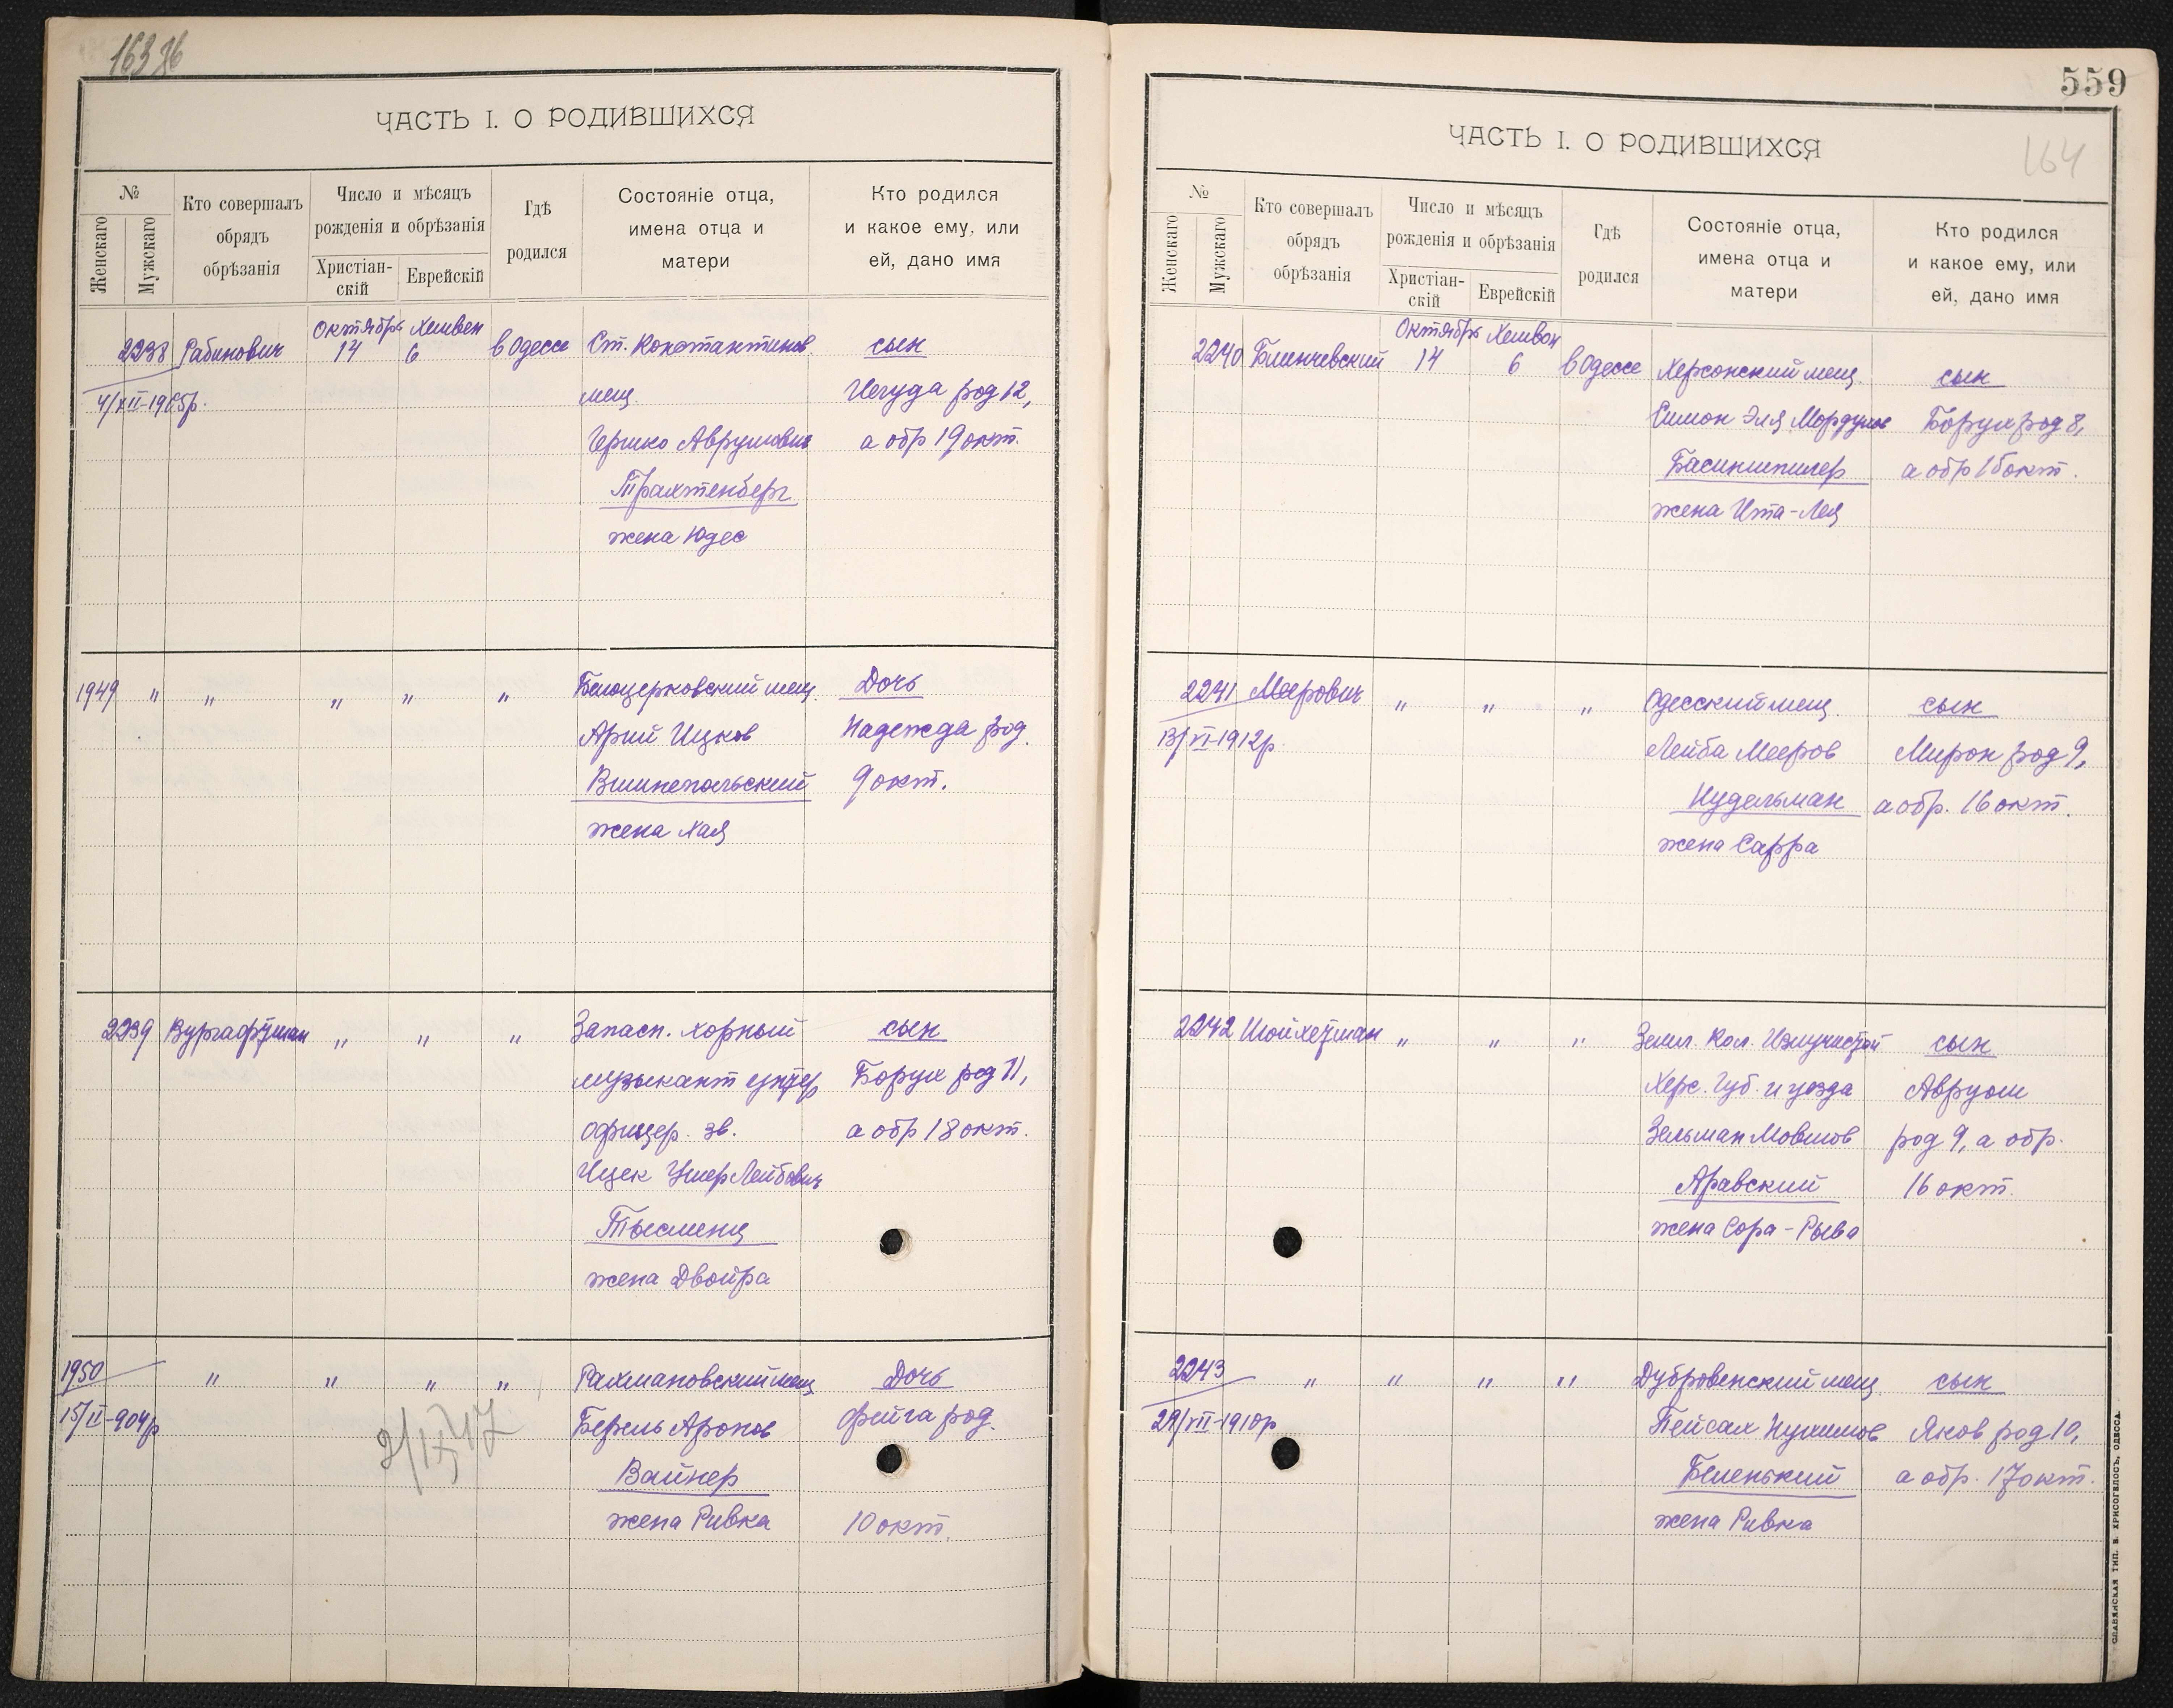 ЧАСТЬ I. О РОДИВШИХСЯ
№
Женскаго
Мужскаго
Кто совершалъ
обрядъ
обрѣзанія
Число и мѣсяцъ
рожденія и обрѣзанія
Христіан-
скій
Еврейскій
Гдѣ
родился
Состояніе отца,
имена отца и
матери
Кто родился
и какое ему, или
ей, дано имя
2238 Рабинович Октябрь 14 Хешвен 6 в Одессе Ст. Константинов. сын
4/XII-1905р. мещ. Иегуда род 12,
Гершко Аврумович а обр 19 окт.
Трахтенберг
жена Юдес
1949 " " " " " Белоцерковский мещ. Дочь
Арий Ицков Надежда род.
9 окт.
жена Хая
2239 Вургафтман " " " Запасн. хорный сын
музыкант унтер Борух род 11,
офицер. зв. а обр 18 окт.
Ицек Ушер Лейбович
Тысменец
жена Двойра
1950 " " " " Рахмановский мещ. Дочь
15/II-904р Берель Аронов Фейга род.
Вайнер
жена Ривка 10 окт.
559
164
ЧАСТЬ I. О РОДИВШИХСЯ
№
Женскаго
Мужскаго
Кто совершалъ
обрядъ
обрѣзанія
Число и мѣсяцъ
рожденія и обрѣзанія
Христіан-
скій
Еврейскій
Гдѣ
родился
Состояніе отца,
имена отца и
матери
Кто родился
и какое ему, или
ей, дано имя
2240 Блинчевский Октябрь 14 Хешвен 6 в Одессе Херсонский мещ. сын
Симон Эля Мордухов Борух род 8,
Басиншпилер а обр 15 окт.
жена Ита-Лея
2241 Меерович " " " Одесский мещ. сын
13/VI-1912р. Лейба Мееров Мирон род 9,
Нудельман а обр. 16 окт.
жена Сарра
2242 Шойхетман " " " Земл. Кол. Измучистой сын
Херс. губ. и уезда Авруом
Зельман Мовшов род 9, а обр.
Аравский 16 окт.
жена Сора-Рыва
2243 " " " " Дубровенский мещ. сын
29/VII-1910р Пейсах Нухимов Яков род 10,
Беленький а обр. 17 окт.
жена Ривка
СЛАВЯНСКАЯ ТИП. Е. ХРИСОГЕЛОСЪ, ОДЕССА.